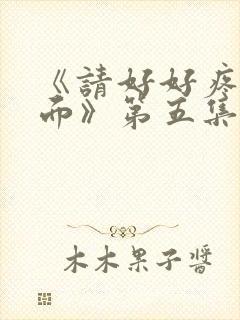 《請好好疼
而》第五集
木木果子醬